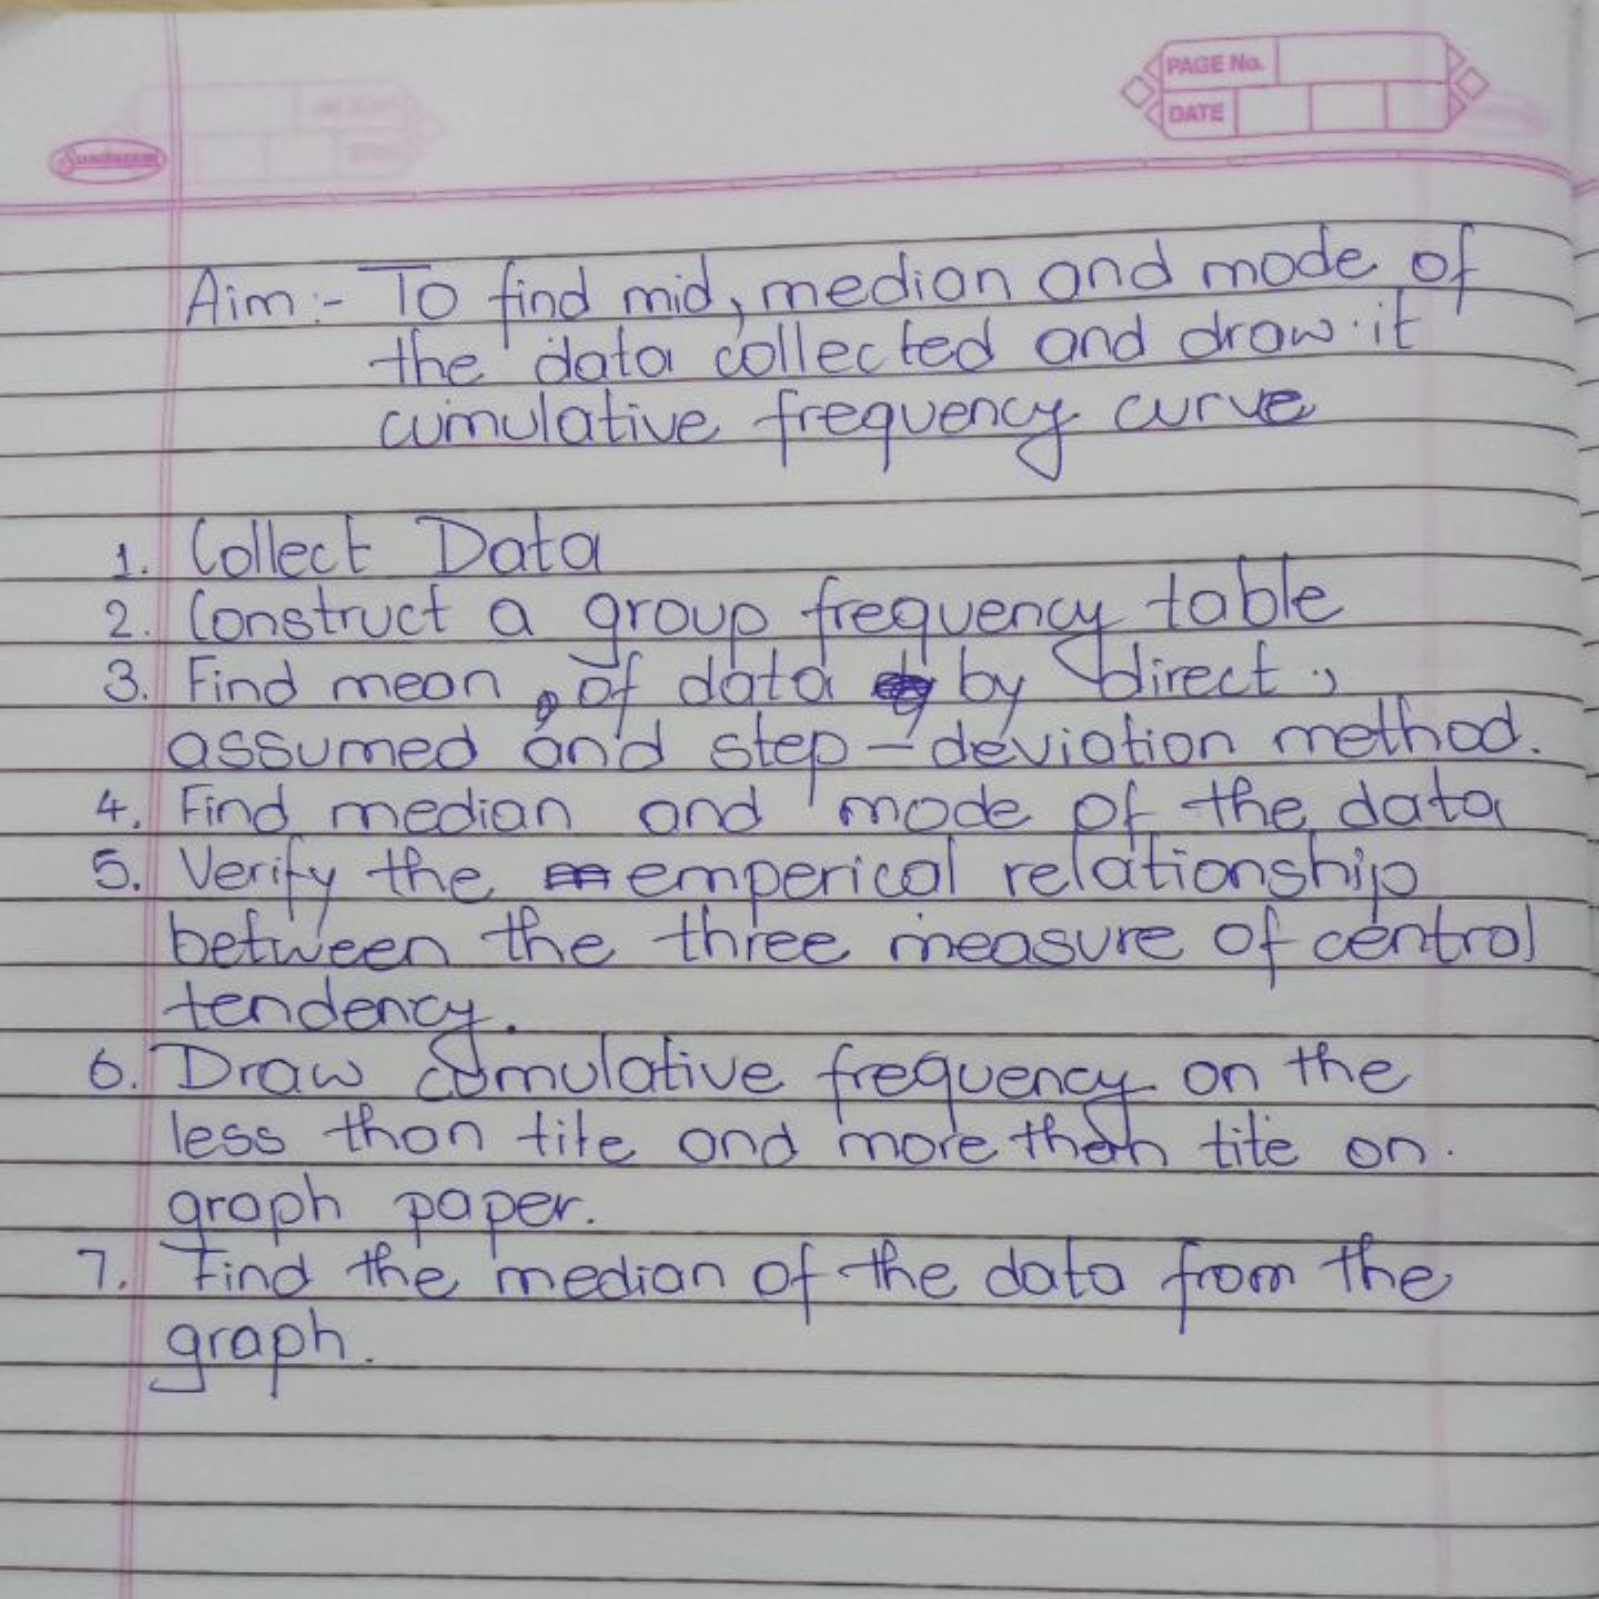 PAGE No.
DATE
Sundaram
Aim:- To find mid, median and mode of
the data collected and draw it
cumulative frequency curve
1. Collect Data
2. Construct a group frequency table
3. Find mean, of data by direct,
assumed and step-deviation method.
4. Find median and mode of the data
5. Verify the emperical relationship
between the three measure of central
tendency.
6. Draw cumulative frequency on the
less than tite and more than tite on.
graph paper.
7. Find the median of the data from the
graph.